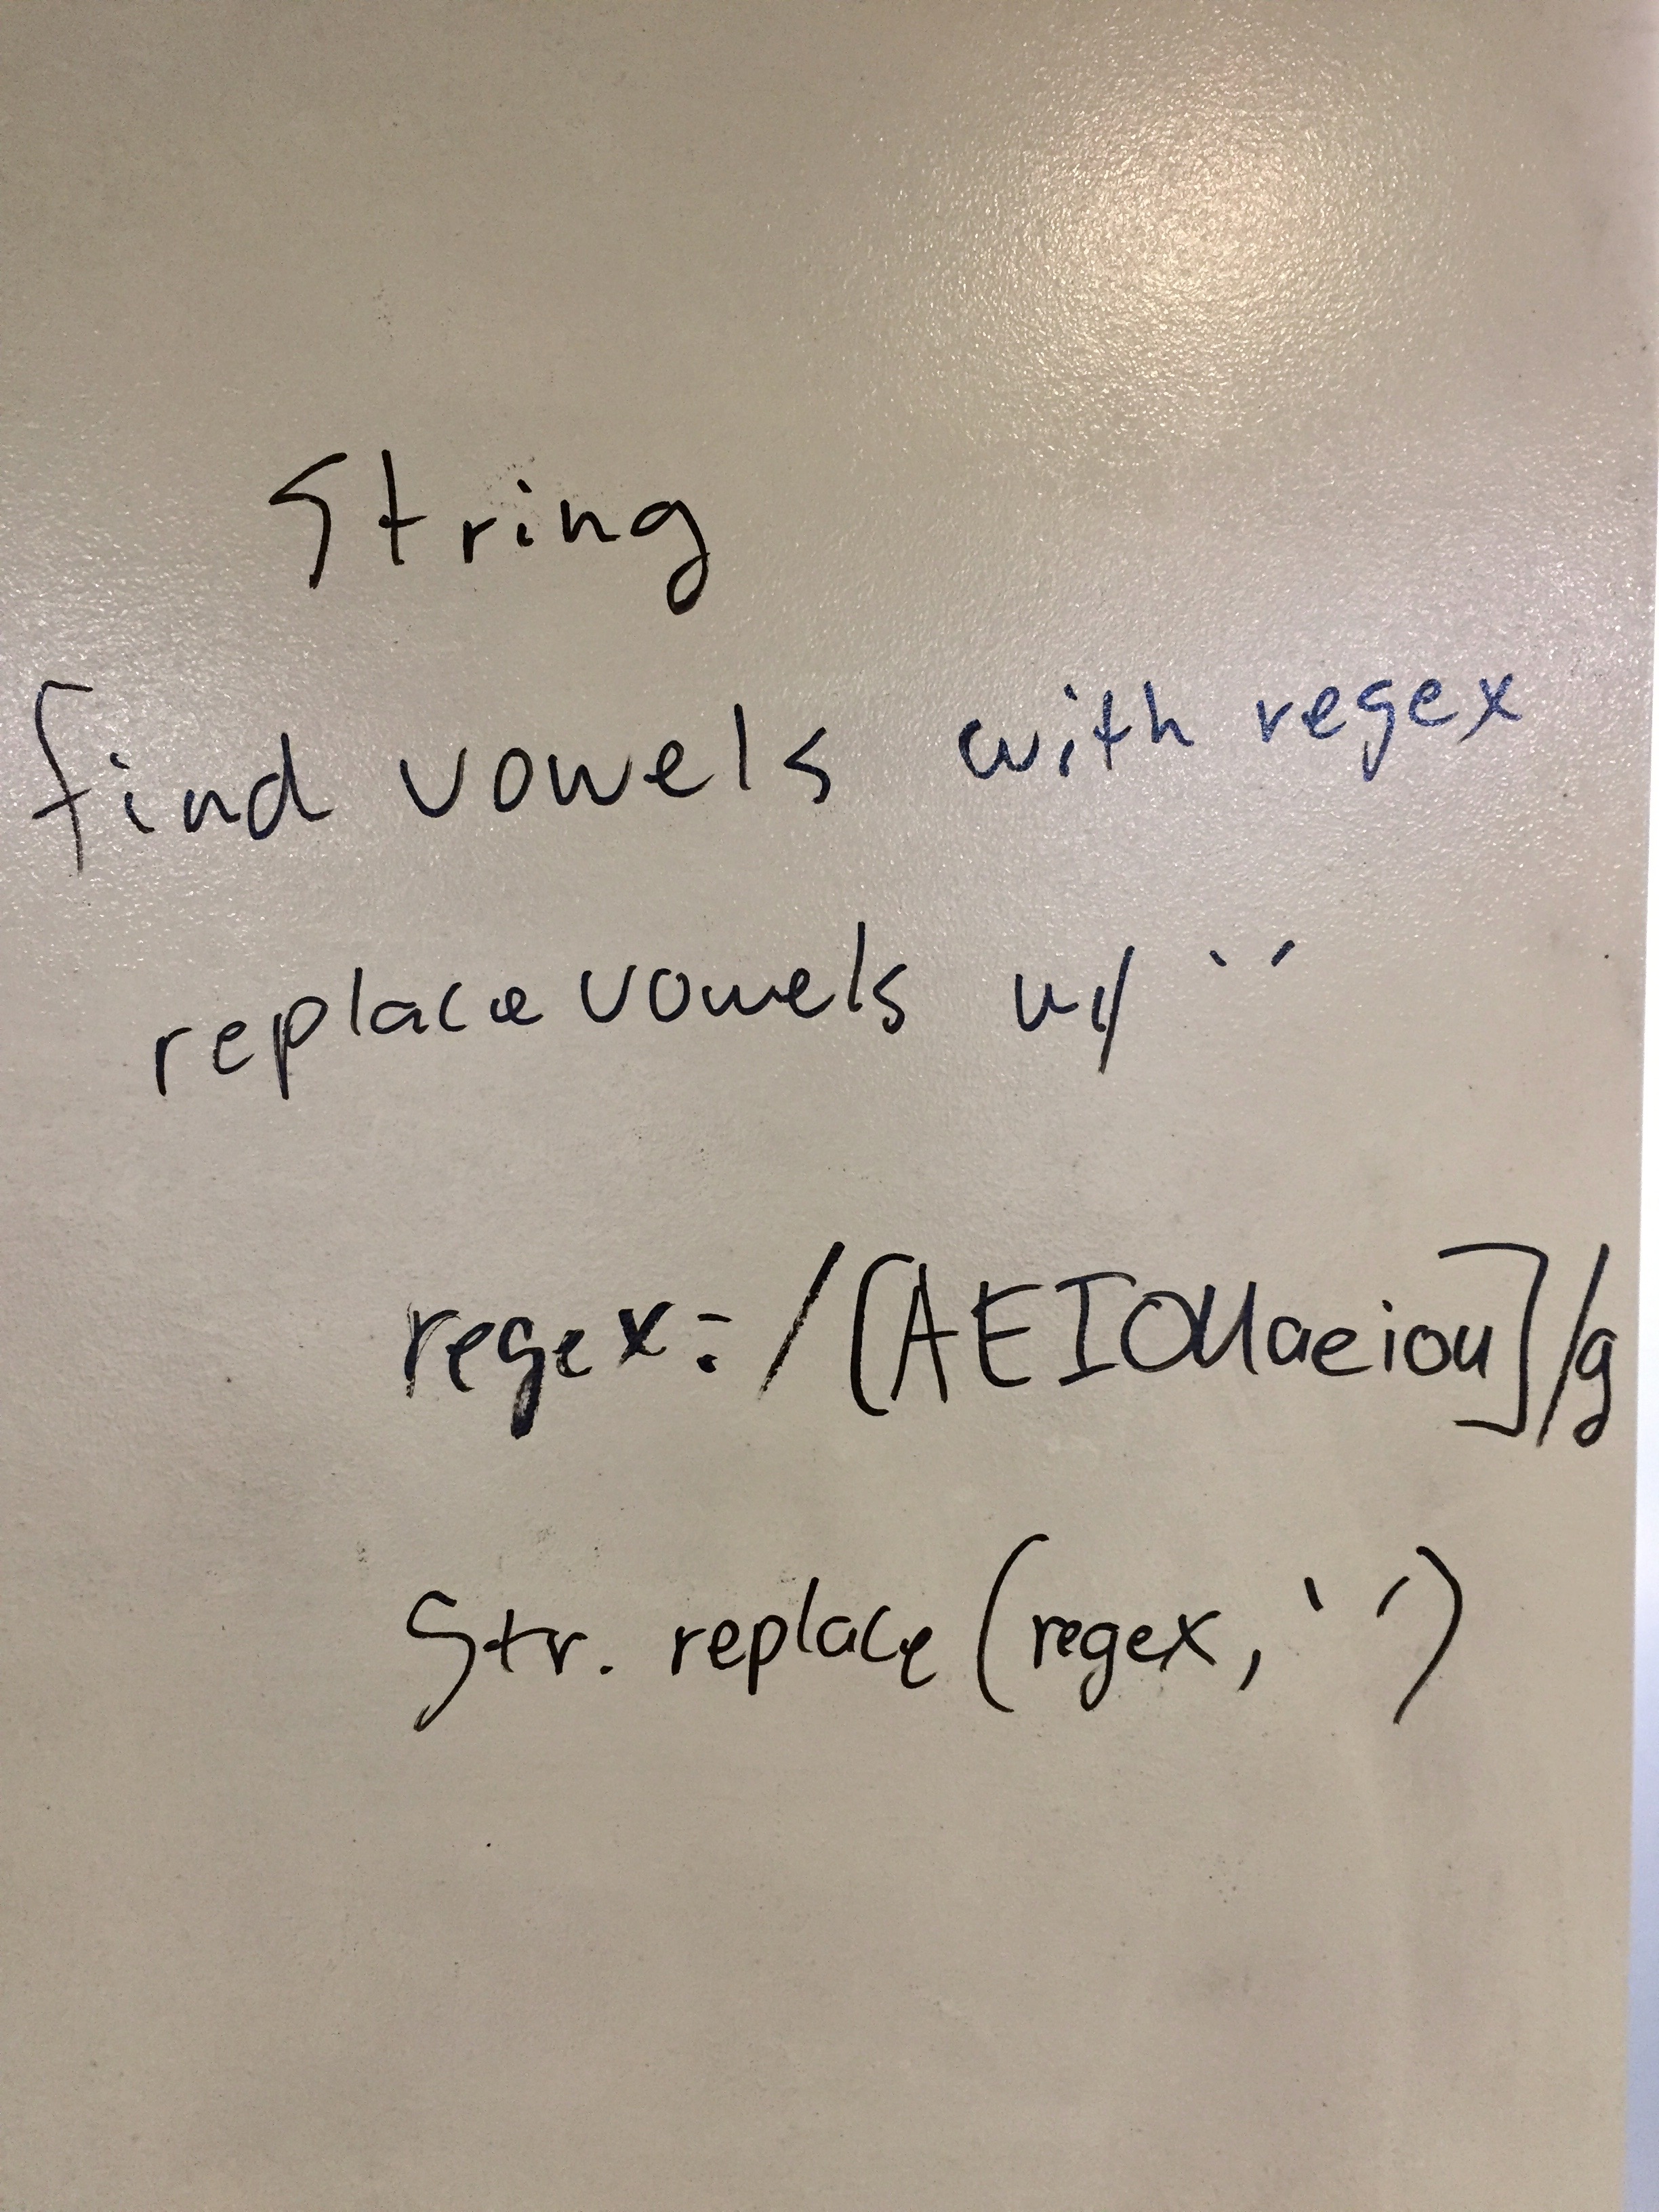 String
find vowels with regex
replace vowels w/ ''
regex = /[AEIOUaeiou]/g
Str. replace (regex, '')